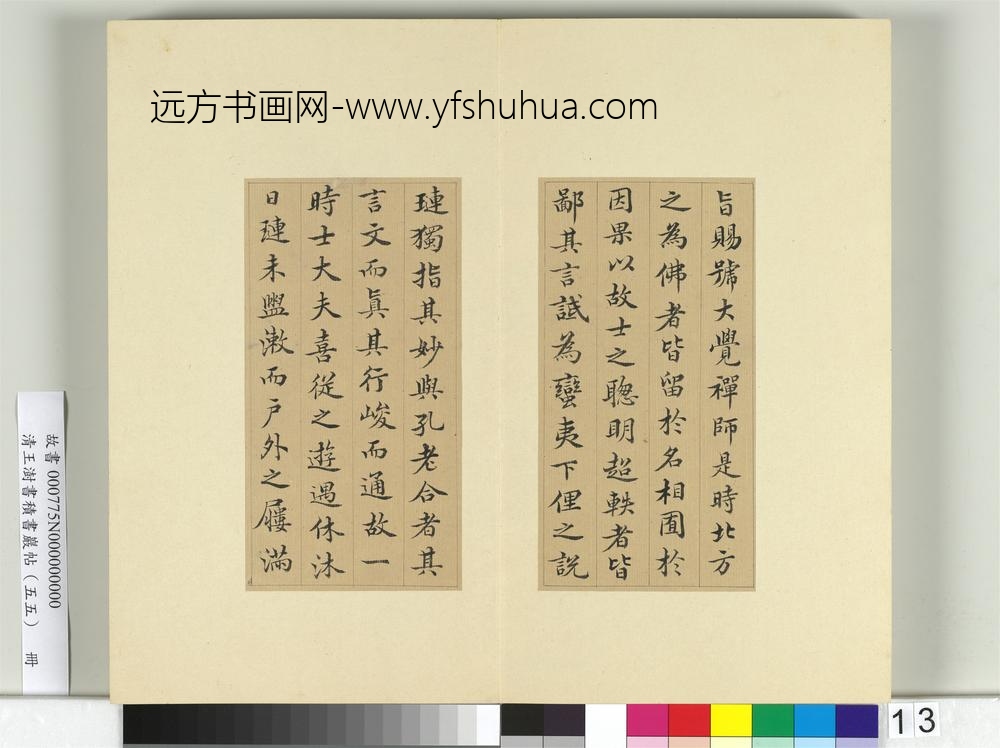 远方书画网-www.yfshuhua.com
旨賜號大覺禪師是時北方
之為佛者皆留於名相囿於
因果以故士之聰明超軼者皆
鄙其言詆為蠻夷下俚之說
璉獨指其妙與孔老合者其
言文而眞其行峻而通故一
時士大夫喜從之遊遇休沐
日璉未盥漱而户外之屨滿
故書000775N000000000
清王澍書積書巖帖（五五） 冊
13